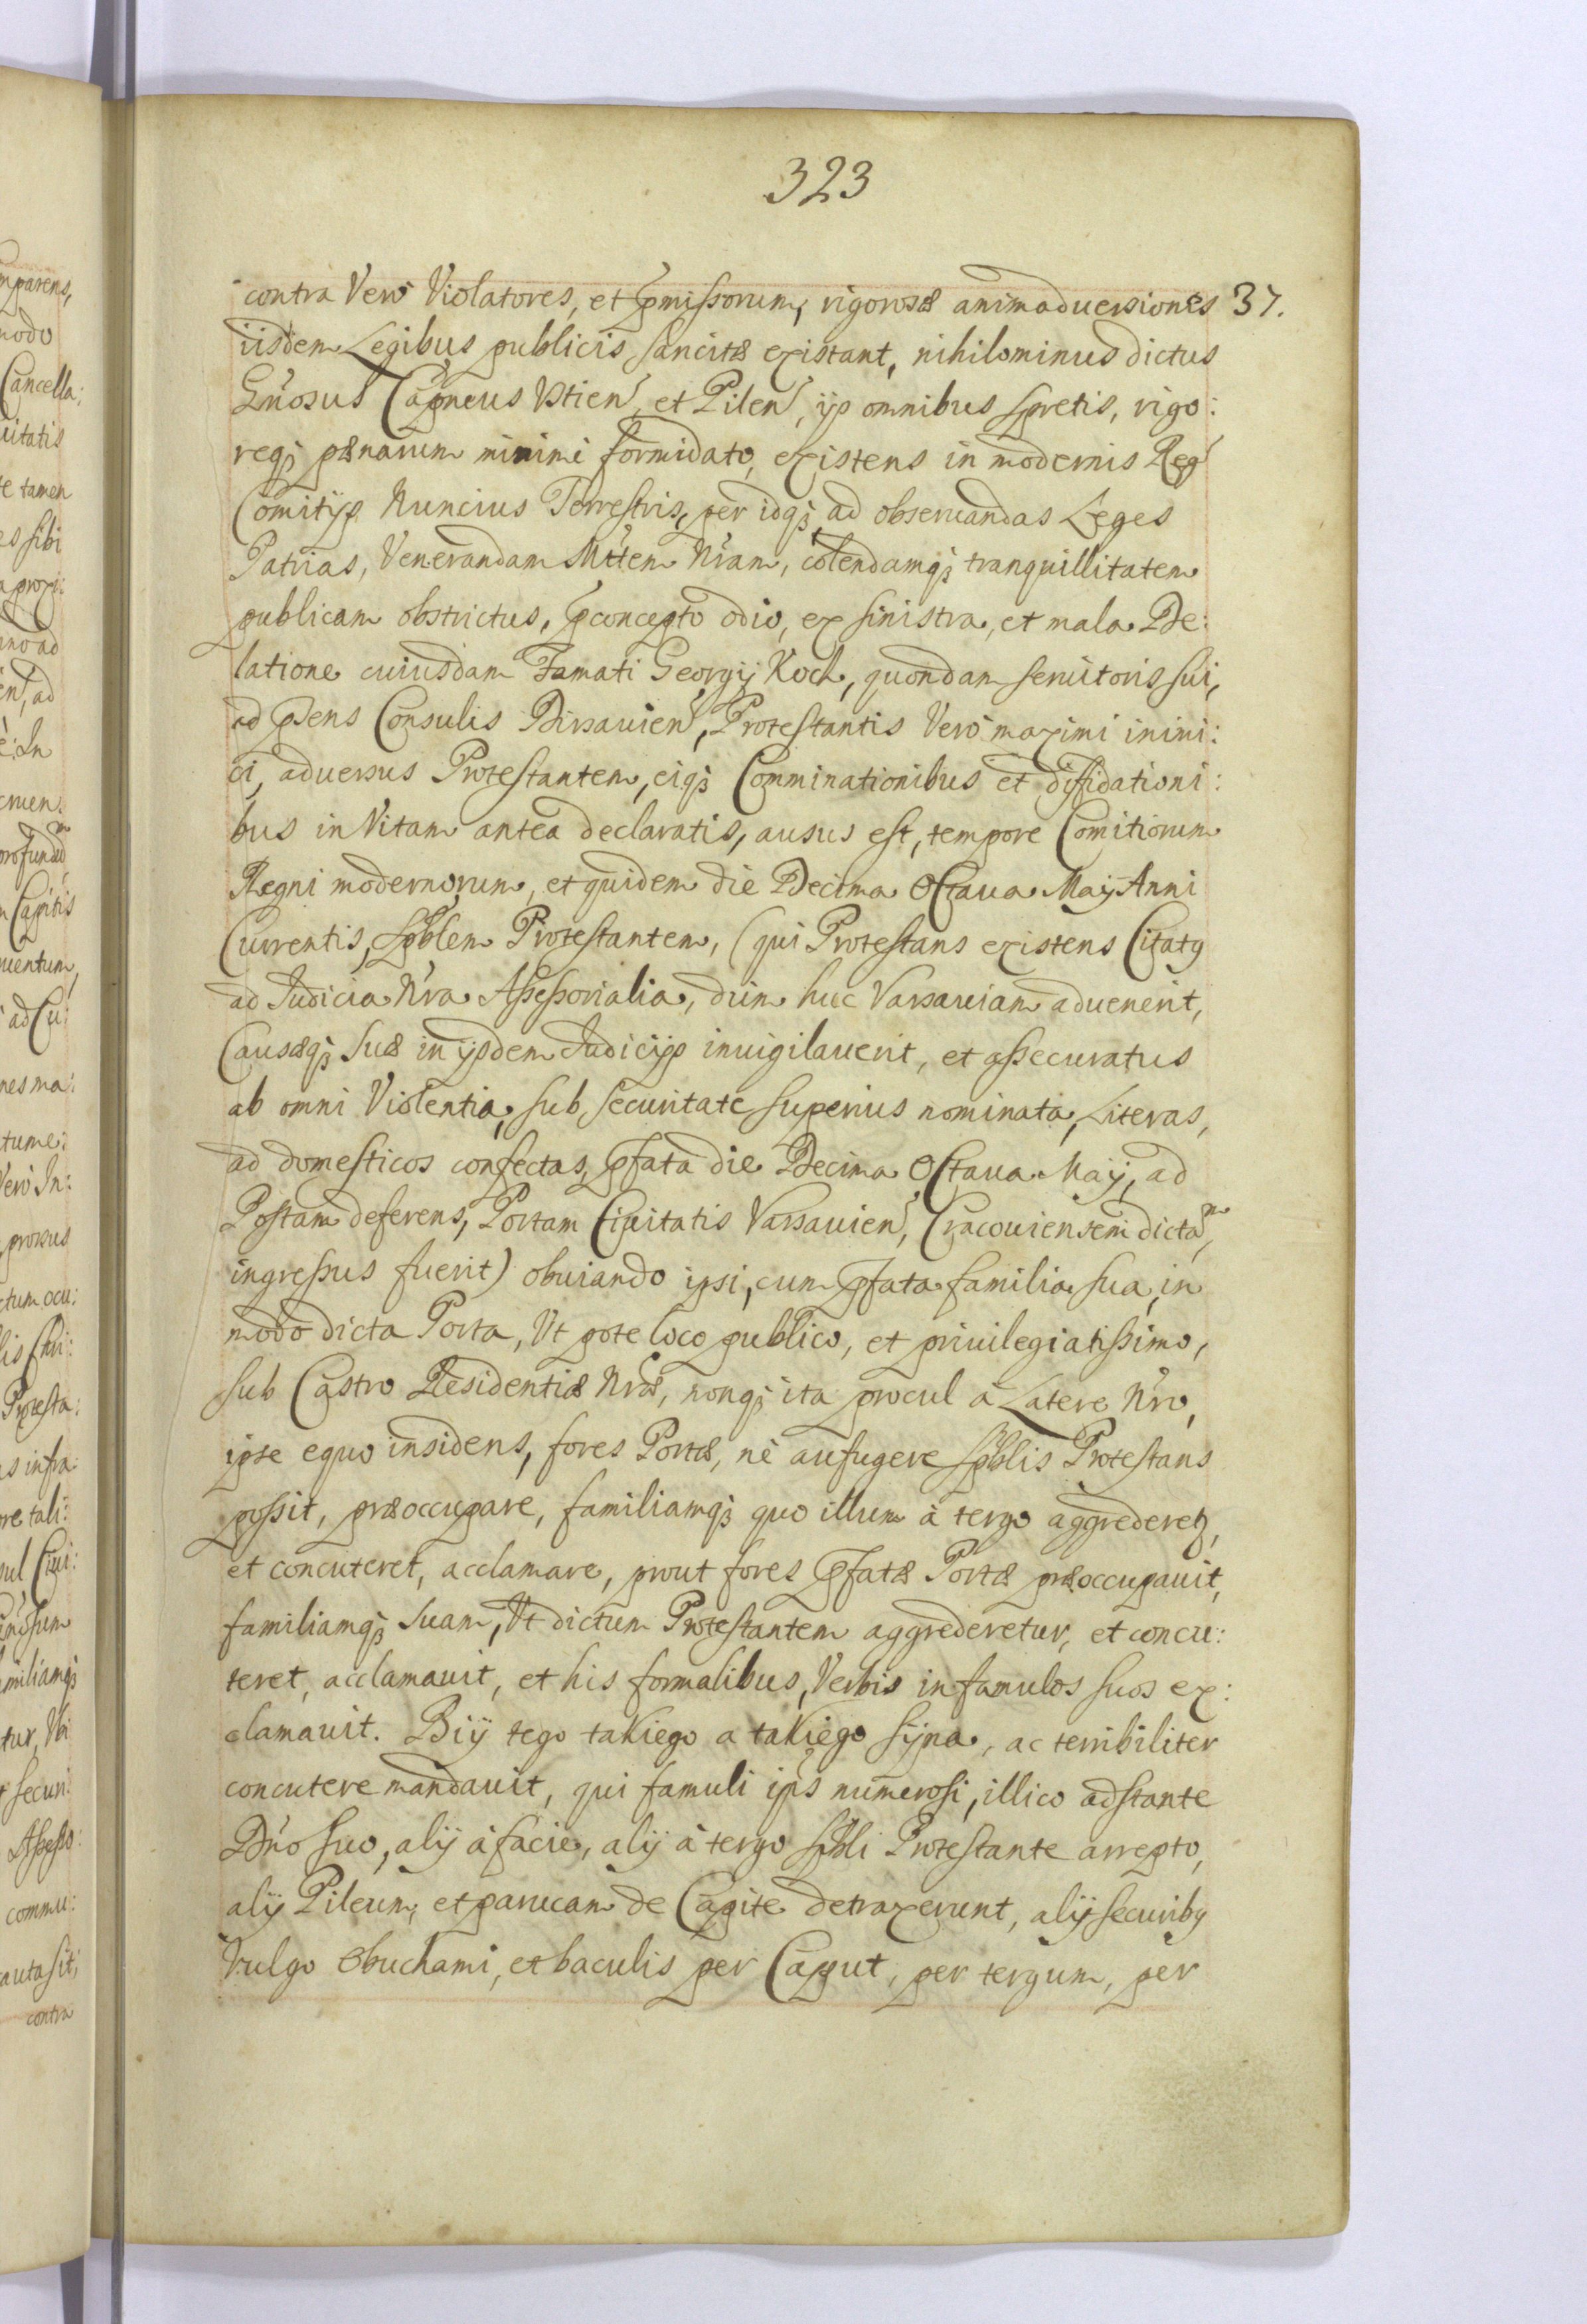 323
contra Vero Violatores, et p̃missorum, rigorosæ animaduersiones 37.
iisdem Legibus publicis sancitæ existant, nihilominus dictus
Gñosus Capneus Vstien̄, et Pilen̄, ijs omnibus spretis, rigo:
req; pænarum minimè formidato, existens in modernis Reg̃
Comitijs Nuncius Terrestris, per idq; ad obseruandas Leges
Patrias, Venerandam Mttem Nr̃am, colendamq; tranquillitatem
publicam obstrictus, p̃concepto odio, ex sinistra, et mala De:
latione cuiusdam Famati Georgij Koch, quondam seruitoris sui,
ad p̃sens Consulis Dirsauien̄, Protestantis Vero maximi inimi:
ci, aduersus Protestantem, eiq; Comminationibus et diffidationi:
bus in Vitam antea declaratis, ausus est, tempore Comitiorum
Regni modernorum, et quidem die Decima Octaua Maij Anni
Currentis, Spblem Protestantem, (qui Protestans existens Citatq
ad Judicia Nr̃a Assessorialia, dum huc Varsauiam aduenerit,
Causæq; suæ in ijsdem Judicijs inuigilauerit, et assecuratus
ab omni Violentia, sub securitate superius nominata, Literas,
ad domesticos confectas, p̃fata die Decima Octaua Maij, ad
Postam deferens, Portam Ciuitatis Varsauien̄, Cracouiensem dictam,
ingressus fuerit) obuiando ipsi, cum p̃fata familia sua, in
modo dicta Porta, Vt pote loco publico, et priuilegiatissimo,
sub Castro Residentiæ Nr̃æ, nonq; ita procul à Latere Nr̃o,
ipse equo insidens, fores Portæ, nè aufugere Spblis Protestans
possit, præoccupare, familiamq; quo illum à tergo aggrederet̃,
et concuteret, acclamare, prout fores p̃fatæ Portæ præoccupauit,
familiamq; suam, Vt dictum Protestantem aggrederetur, et concu:
teret, acclamauit, et his formalibus, Verbis in famulos suos ex:
clamauit. Biÿ tego takiego a takiego sÿna, ac terribiliter
concutere mandauit, qui famuli ip̃s numerosi, illico adstante
Dño suo, alij à facie, alij à tergo Spbli Protestante arrepto,
alij Pileum, et parucam de Capite detraxerunt, alij securibq
Vulgo Obuchami, et baculis per Caput, per tergum, per